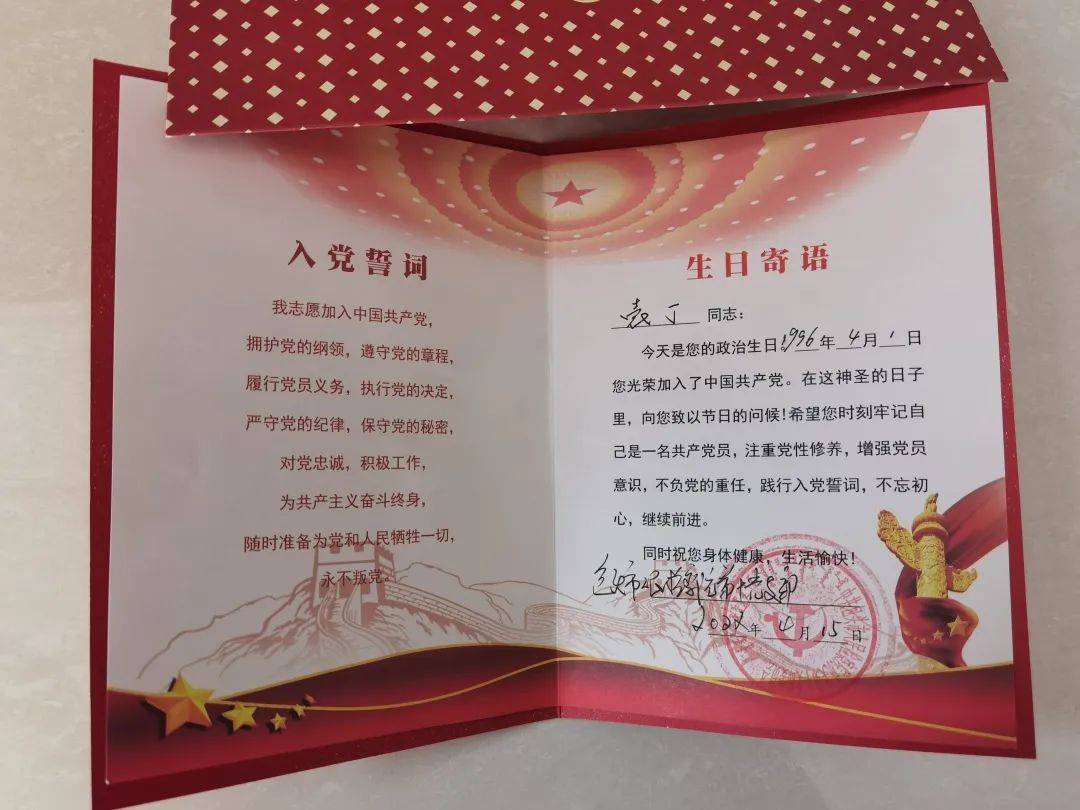 入党誓词
我志愿加入中国共产党，
拥护党的纲领，遵守党的章程，
履行党员义务，执行党的决定，
严守党的纪律，保守党的秘密，
对党忠诚，积极工作，
为共产主义奋斗终身，
随时准备为党和人民牺牲一切，
永不叛党。
生日寄语
袁丁 同志：
今天是您的政治生日1996年4月1日
您光荣加入了中国共产党。在这神圣的日子
里，向您致以节日的问候！希望您时刻牢记自
己是一名共产党员，注重党性修养，增强党员
意识，不负党的重任，践行入党誓词，不忘初
心，继续前进。
同时祝您身体健康，生活愉快！
2022年4月15日